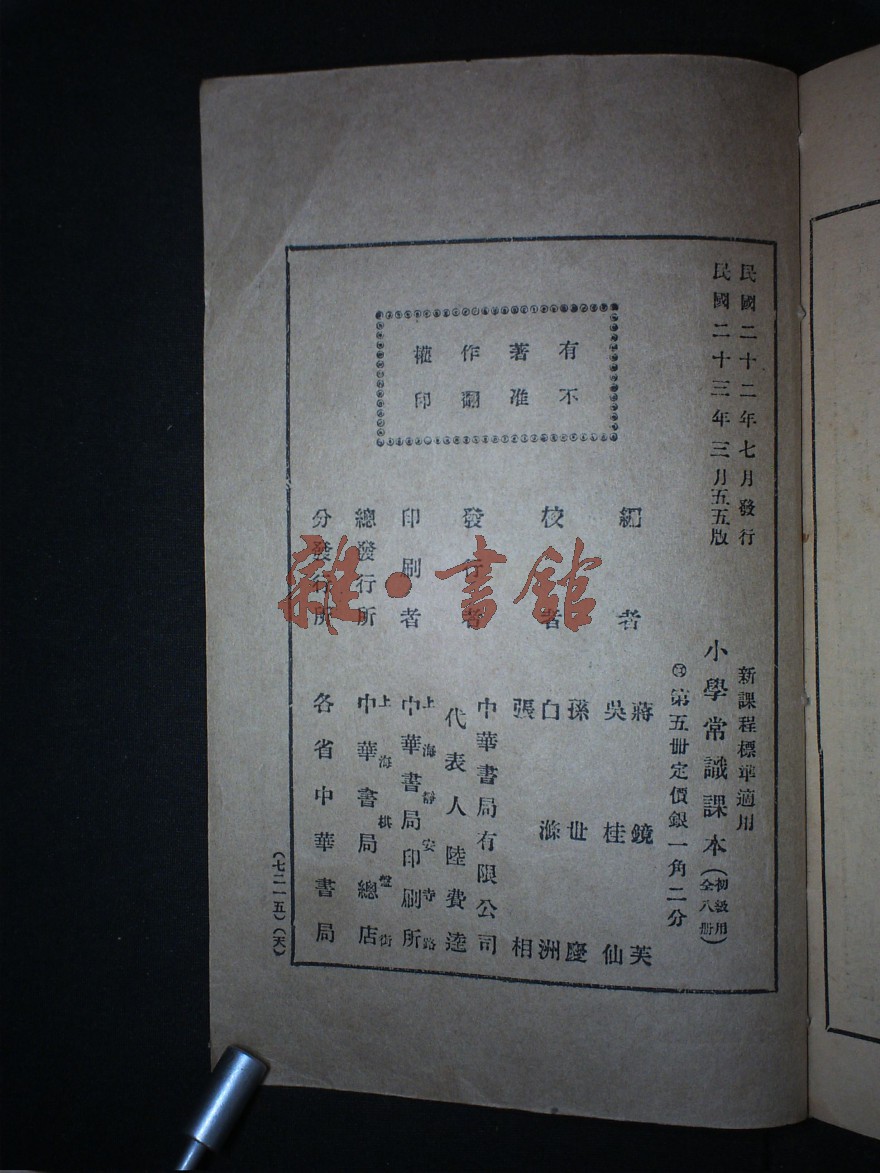 民國二十二年七月發行
民國二十三年三月五五版
新課程標準適用
小學常識課本(初級用全八冊)
第五冊定價銀一角二分
有著作權
不准翻印
編者 蔣鏡芙
吳桂仙
校者 孫世慶
白滌洲
張相
發行者 中華書局有限公司
代表人陸費逵
印刷者 上海靜安寺路
中華書局印刷所
總發行所 上海棋盤街
中華書局總店
分發行所 各省中華書局
(七二一五)(天)
雜·書館